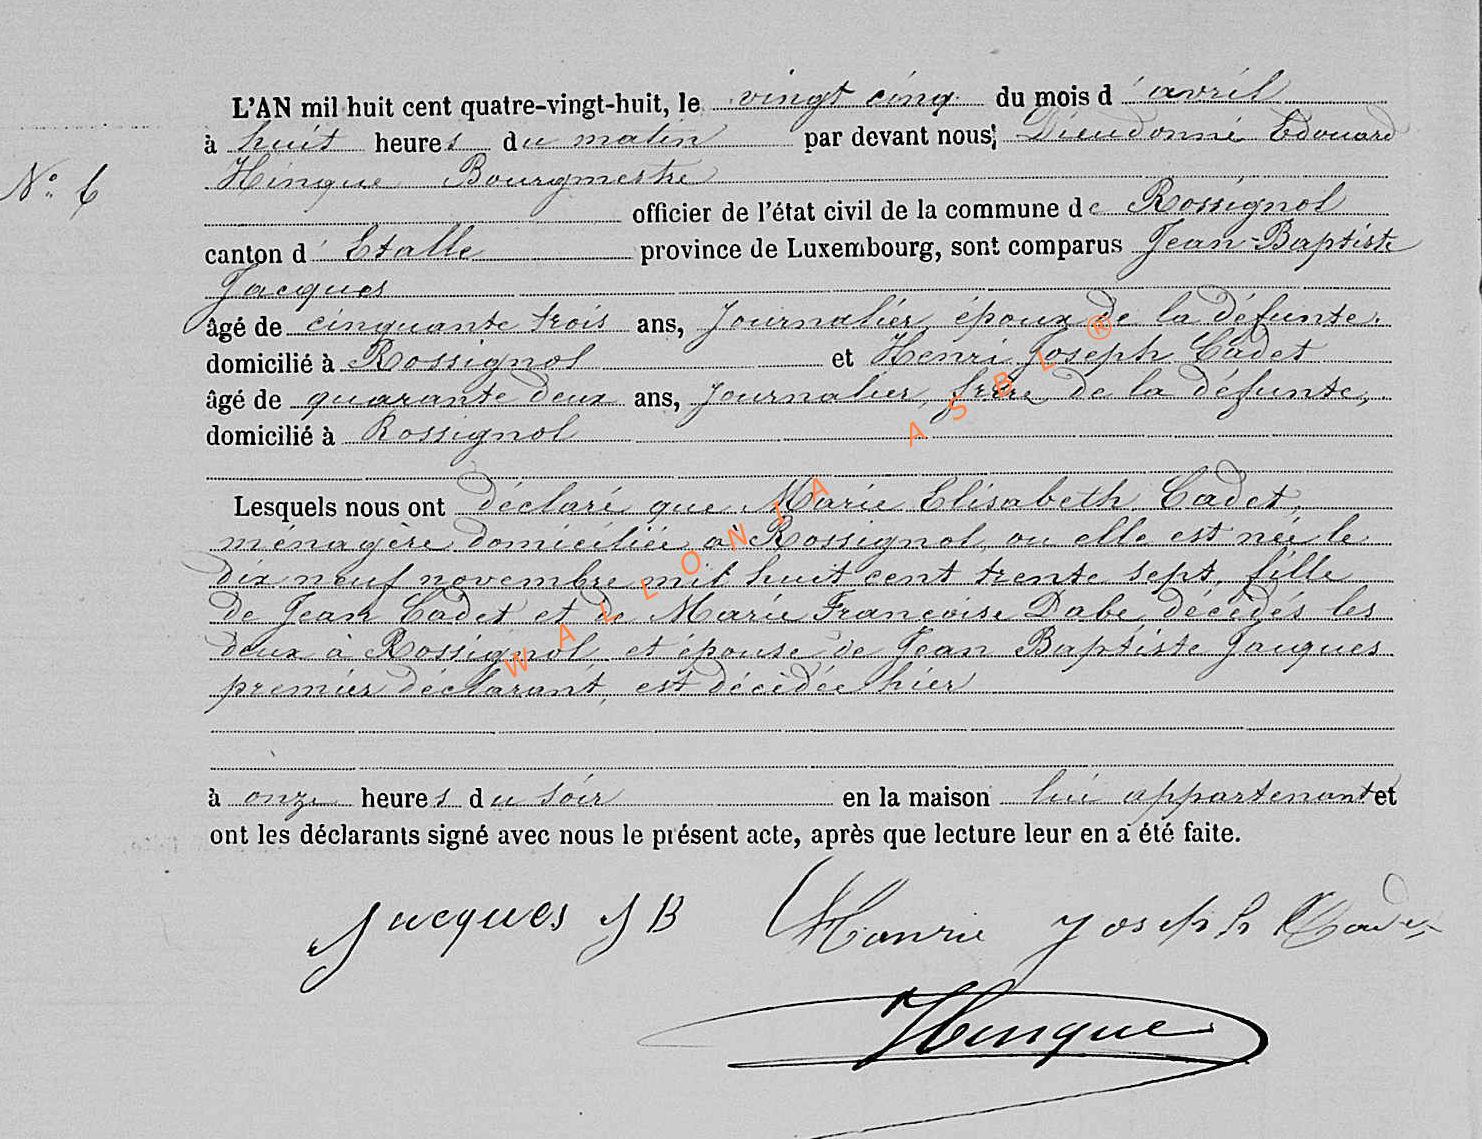 L'AN mil huit cent quatre-vingt-huit, le vingt cinq du mois d'avril
à huit heures du matin par devant nous, Dieudonné Edouard
N° 6
Hinque Bourgmestre
officier de l'état civil de la commune de Rossignol
canton d'Etalle province de Luxembourg, sont comparus Jean-Baptiste
Jacques
âgé de cinquante trois ans, Journalier, époux de la défunte.
domicilié à Rossignol et Henri Joseph Cadet
âgé de quarante deux ans, Journalier, frère de la défunte,
domicilié à Rossignol
Lesquels nous ont déclaré que Marie Elisabeth Cadet,
ménagère domiciliée à Rossignol, ou elle est née le
dix neuf novembre mil huit cent trente sept, fille
de Jean Cadet et de Marie Françoise Dabe, décédés les
deux à Rossignol et épouse de Jean Baptiste Jacques
premier déclarant, est décédée hier
à onze heures du soir en la maison lui appartenant et
ont les déclarants signé avec nous le présent acte, après que lecture leur en a été faite.
Jacques J B Henrie Joseph Cadet
Hinque
WALLONIA ASBL ®